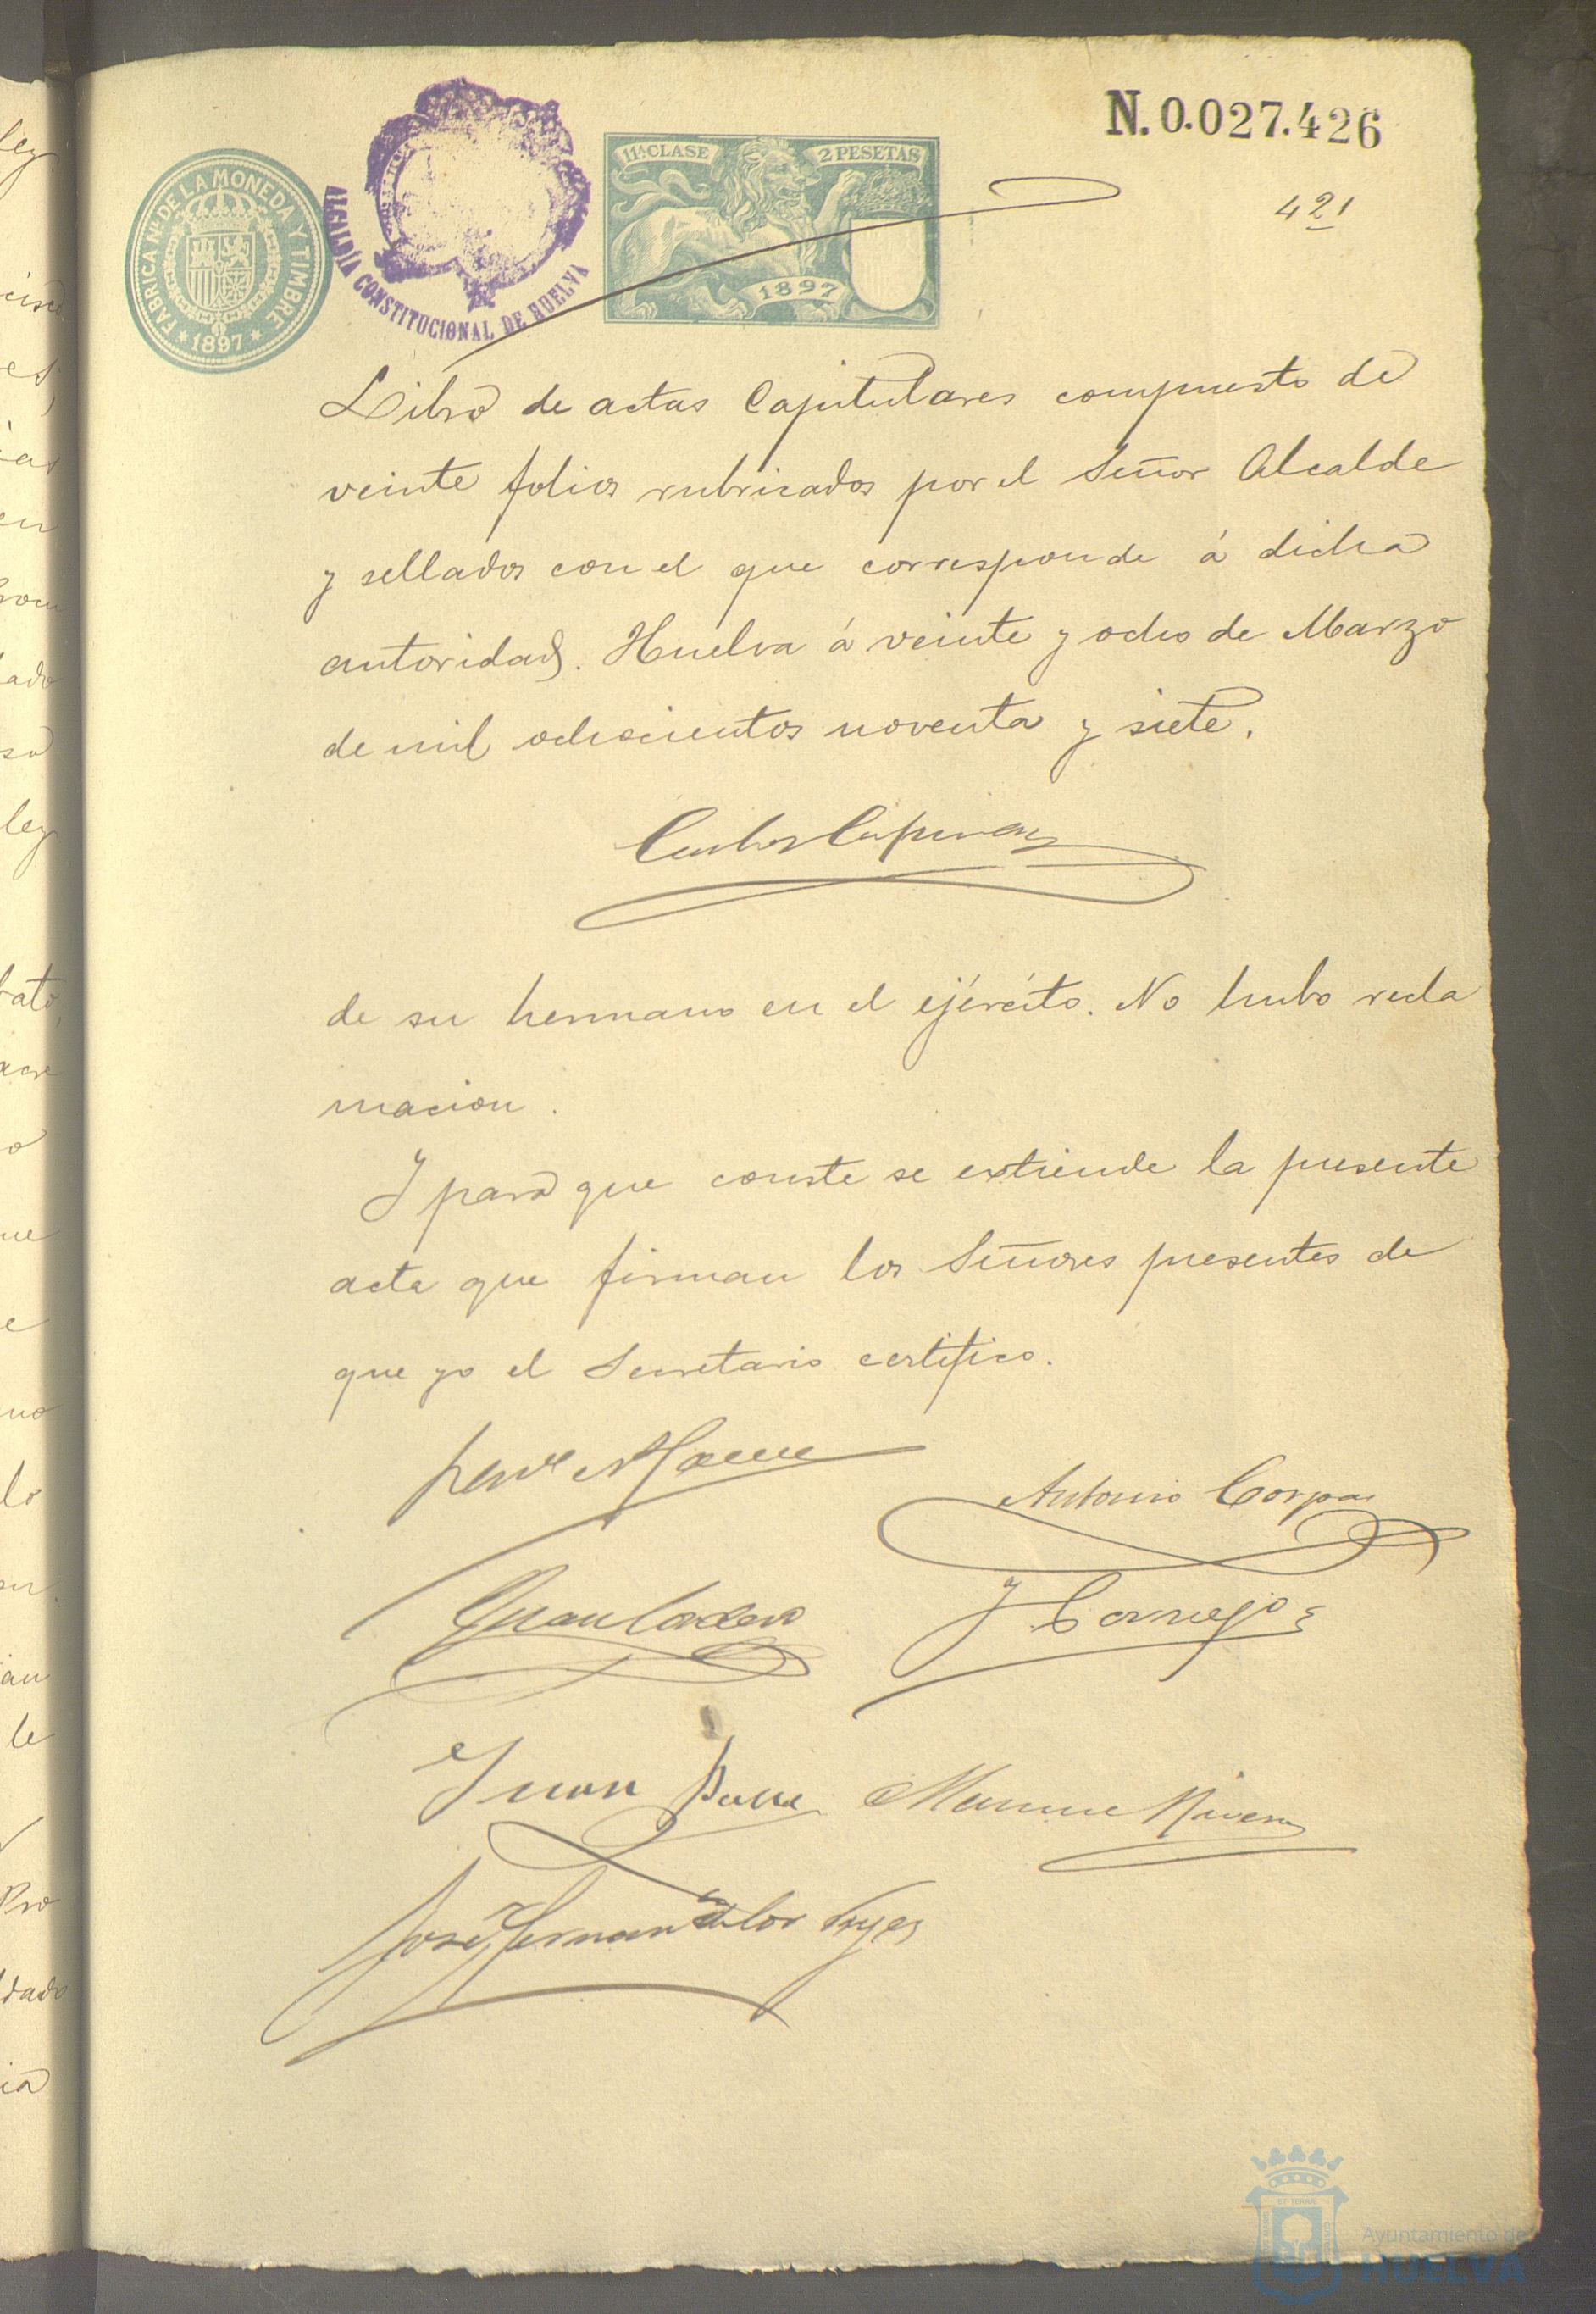 N. 0.027.426
421
FABRICA Nal DE LA MONEDA Y TIMBRE
* 1897 *
ALCALDÍA CONSTITUCIONAL DE HUELVA
11ª CLASE
2 PESETAS
1897
Libro de actas Capitulares compuesto de
veinte folios rubricados por el Señor Alcalde
y sellados con el que corresponde á dicha
autoridad. Huelva á veinte y ocho de Marzo
de mil ochocientos noventa y siete.
de su hermano en el ejército. No hubo recla
macion.
Y para que conste se extiende la presente
acta que firman los Señores presentes de
que yo el Secretario certifico.
Antonio Corpas
Juan Cordero
J Cornejo
Juan
Rivera
José Fernandez
Ayuntamiento de
HUELVA